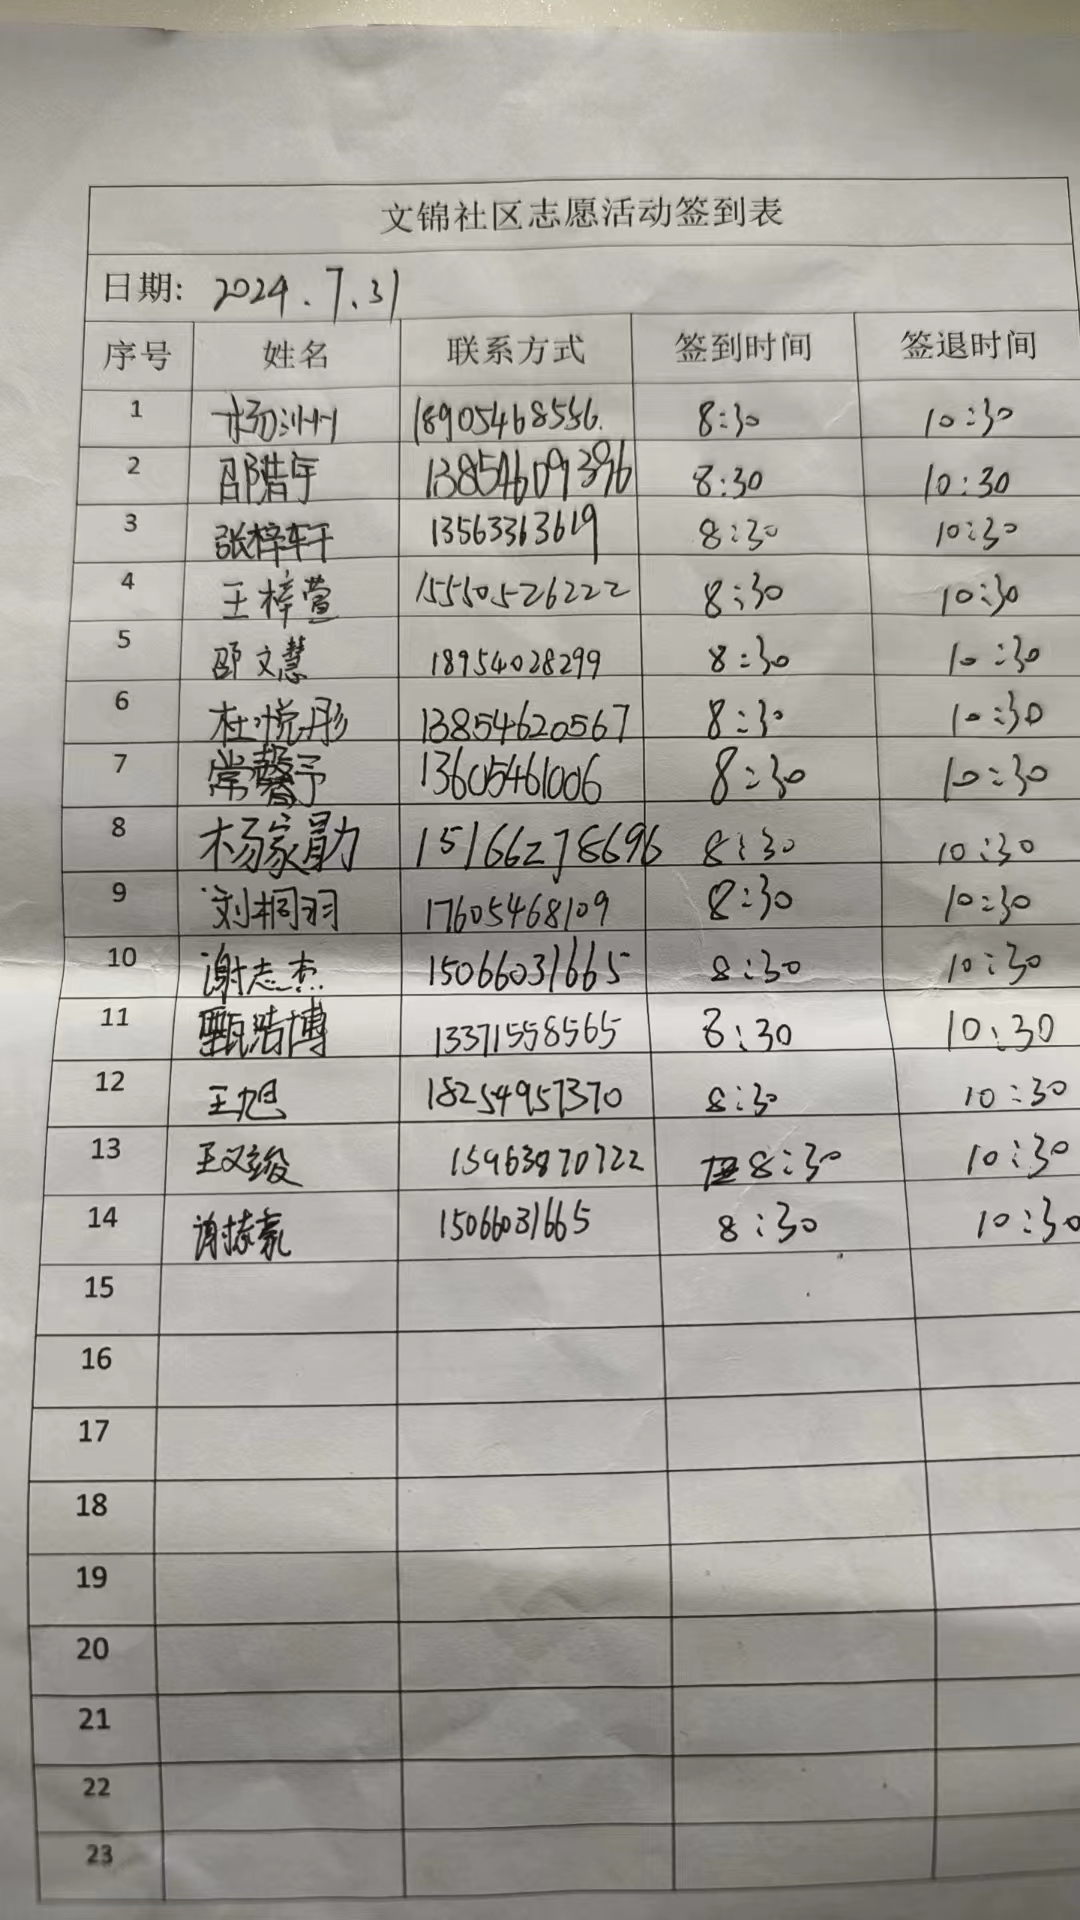 文锦社区志愿活动签到表
日期: 2024.7.31
序号 姓名 联系方式 签到时间 签退时间
1 杨洲 18905468556. 8:30 10:30
2 邵浩宇 13854609396 8:30 10:30
3 张梓轩 13563363619 8:30 10:30
4 王梓萱 15550526222 8:30 10:30
5 邵文慧 18954028299 8:30 10:30
6 杜悦彤 13854620567 8:30 10:30
7 常馨予 13605461006 8:30 10:30
8 杨家勛 15166278696 8:30 10:30
9 刘桐羽 17605468109 8:30 10:30
10 谢志杰 15066031665 8:30 10:30
11 甄浩博 13371558565 8:30 10:30
12 王旭 18254957370 8:30 10:30
13 王义竣 15963870722 8:30 10:30
14 谢 豪 15066031665 8:30 10:30
15
16
17
18
19
20
21
22
23